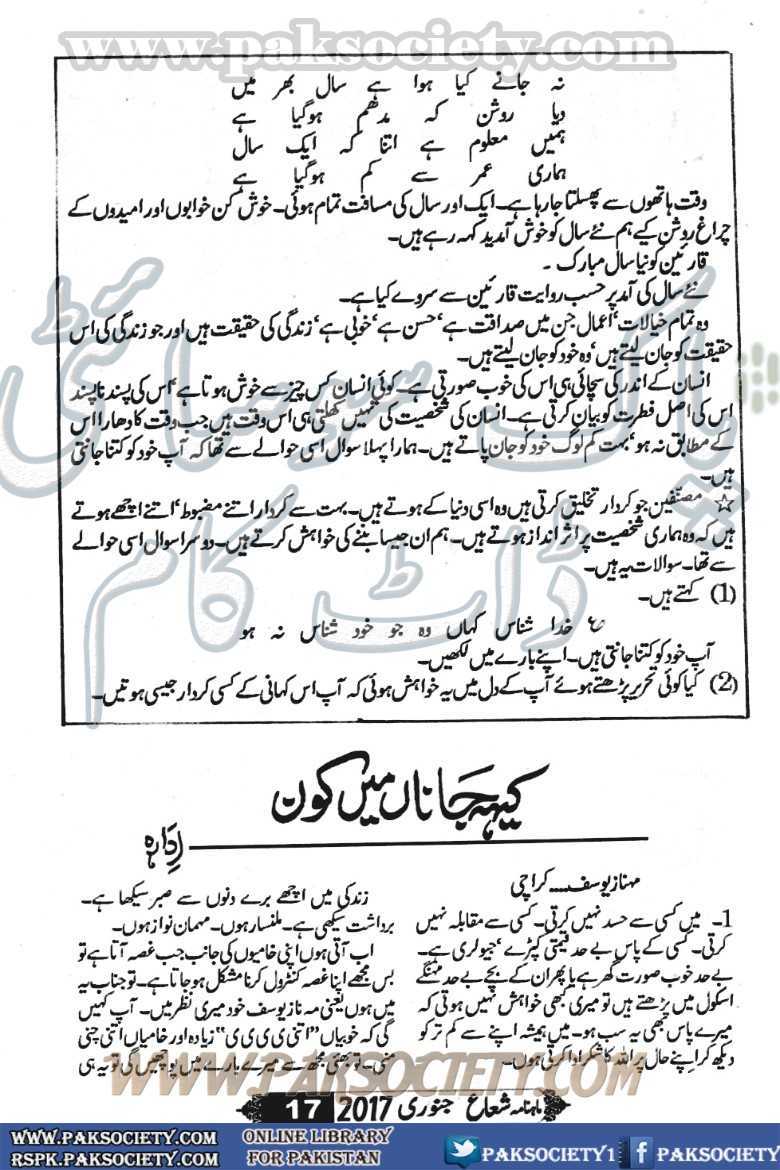 www.paksociety.com
نہ جانے کیا ہوا ہے سال بھر میں
دیا روشن کہ مدھم ہوگیا ہے
ہمیں معلوم ہے اتنا کہ ایک سال
ہماری عمر سے کم ہوگیا ہے
وقت ہاتھوں سے پھسلتا جارہا ہے۔ ایک اور سال کی مسافت تمام ہوئی۔ خوش کن خوابوں اور امیدوں کے
چراغ روشن کیے ہم نئے سال کو خوش آمدید کہہ رہے ہیں۔
قارئین کو نیا سال مبارک۔
نئے سال کی آمد پر حسب روایت قارئین سے سروے کیا ہے۔
وہ تمام خیالات‘ اعمال جن میں صداقت ہے‘ حسن ہے‘ خوبی ہے‘ زندگی کی حقیقت ہیں اور جو زندگی کی اس
حقیقت کو جان لیتے ہیں‘ وہ خود کو جان لیتے ہیں۔
انسان کے اندر کی سچائی ہی اس کی خوب صورتی ہے۔ کوئی انسان کس چیز سے خوش ہوتا ہے‘ اس کی پسند ناپسند
اس کی اصل فطرت کو بیان کرتی ہے۔ انسان کی شخصیت کی تہیں کھلتی ہی اس وقت ہیں جب وقت کا دھارا اس
کے مطابق نہ ہو‘ بہت کم لوگ خود کو جان پاتے ہیں۔ ہمارا پہلا سوال اسی حوالے سے تھا کہ آپ خود کو کتنا جانتی
ہیں۔
☆ مصنفین جو کردار تخلیق کرتی ہیں وہ اسی دنیا کے ہوتے ہیں۔ بہت سے کردار اتنے مضبوط‘ اتنے اچھے ہوتے
ہیں کہ وہ ہماری شخصیت پر اثر انداز ہوتے ہیں۔ ہم ان جیسا بننے کی خواہش کرتے ہیں۔ دوسرا سوال اسی حوالے
سے تھا۔ سوالات یہ ہیں۔
(1) کہتے ہیں۔
ع خدا شناس کہاں وہ جو خود شناس نہ ہو
آپ خود کو کتنا جانتی ہیں۔ اپنے بارے میں لکھیں۔
(2) کیا کوئی تحریر پڑھتے ہوئے آپ کے دل میں یہ خواہش ہوئی کہ آپ اس کہانی کے کسی کردار جیسی ہوتیں۔
پاک سوسائٹی
ڈاٹ کام
کیہہ جاناں میں کون
ادارہ
مہناز یوسف۔۔۔۔ کراچی
1۔ میں کسی سے حسد نہیں کرتی۔ کسی سے مقابلہ نہیں
کرتی۔ کسی کے پاس بے حد قیمتی کپڑے‘ جیولری ہے۔
بے حد خوب صورت گھر ہے یا پھر ان کے بچے بے حد مہنگے
اسکول میں پڑھتے ہیں تو میری کبھی خواہش نہیں ہوتی کہ
میرے پاس بھی یہ سب ہو۔ میں ہمیشہ اپنے سے کم تر کو
دیکھ کر اپنے حال پر اللہ کا شکر ادا کرتی ہوں۔
زندگی میں اچھے برے دنوں سے صبر سیکھا ہے۔
برداشت سیکھی ہے۔ ملنسار ہوں۔ مہمان نواز ہوں۔
اب آتی ہوں اپنی خامیوں کی جانب جب غصہ آتا ہے تو
بس مجھے اپنا غصہ کنٹرول کرنا مشکل ہو جاتا ہے۔ تو جناب یہ
میں ہوں یعنی مہ ناز یوسف خود میری نظر میں۔ آپ کہیں
گی کہ خوبیاں ”اتنی ی ی ی ی“ زیادہ اور خامیاں اتنی چنی
منی۔ تو بھئی مجھ سے میرے بارے میں پوچھیں گی تو یہ ہی
WWW.PAKSOCIETY.COM
ماہنامہ شعاع جنوری 2017 17
WWW.PAKSOCIETY.COM
RSPK.PAKSOCIETY.COM
ONLINE LIBRARY
FOR PAKISTAN
PAKSOCIETY1
PAKSOCIETY